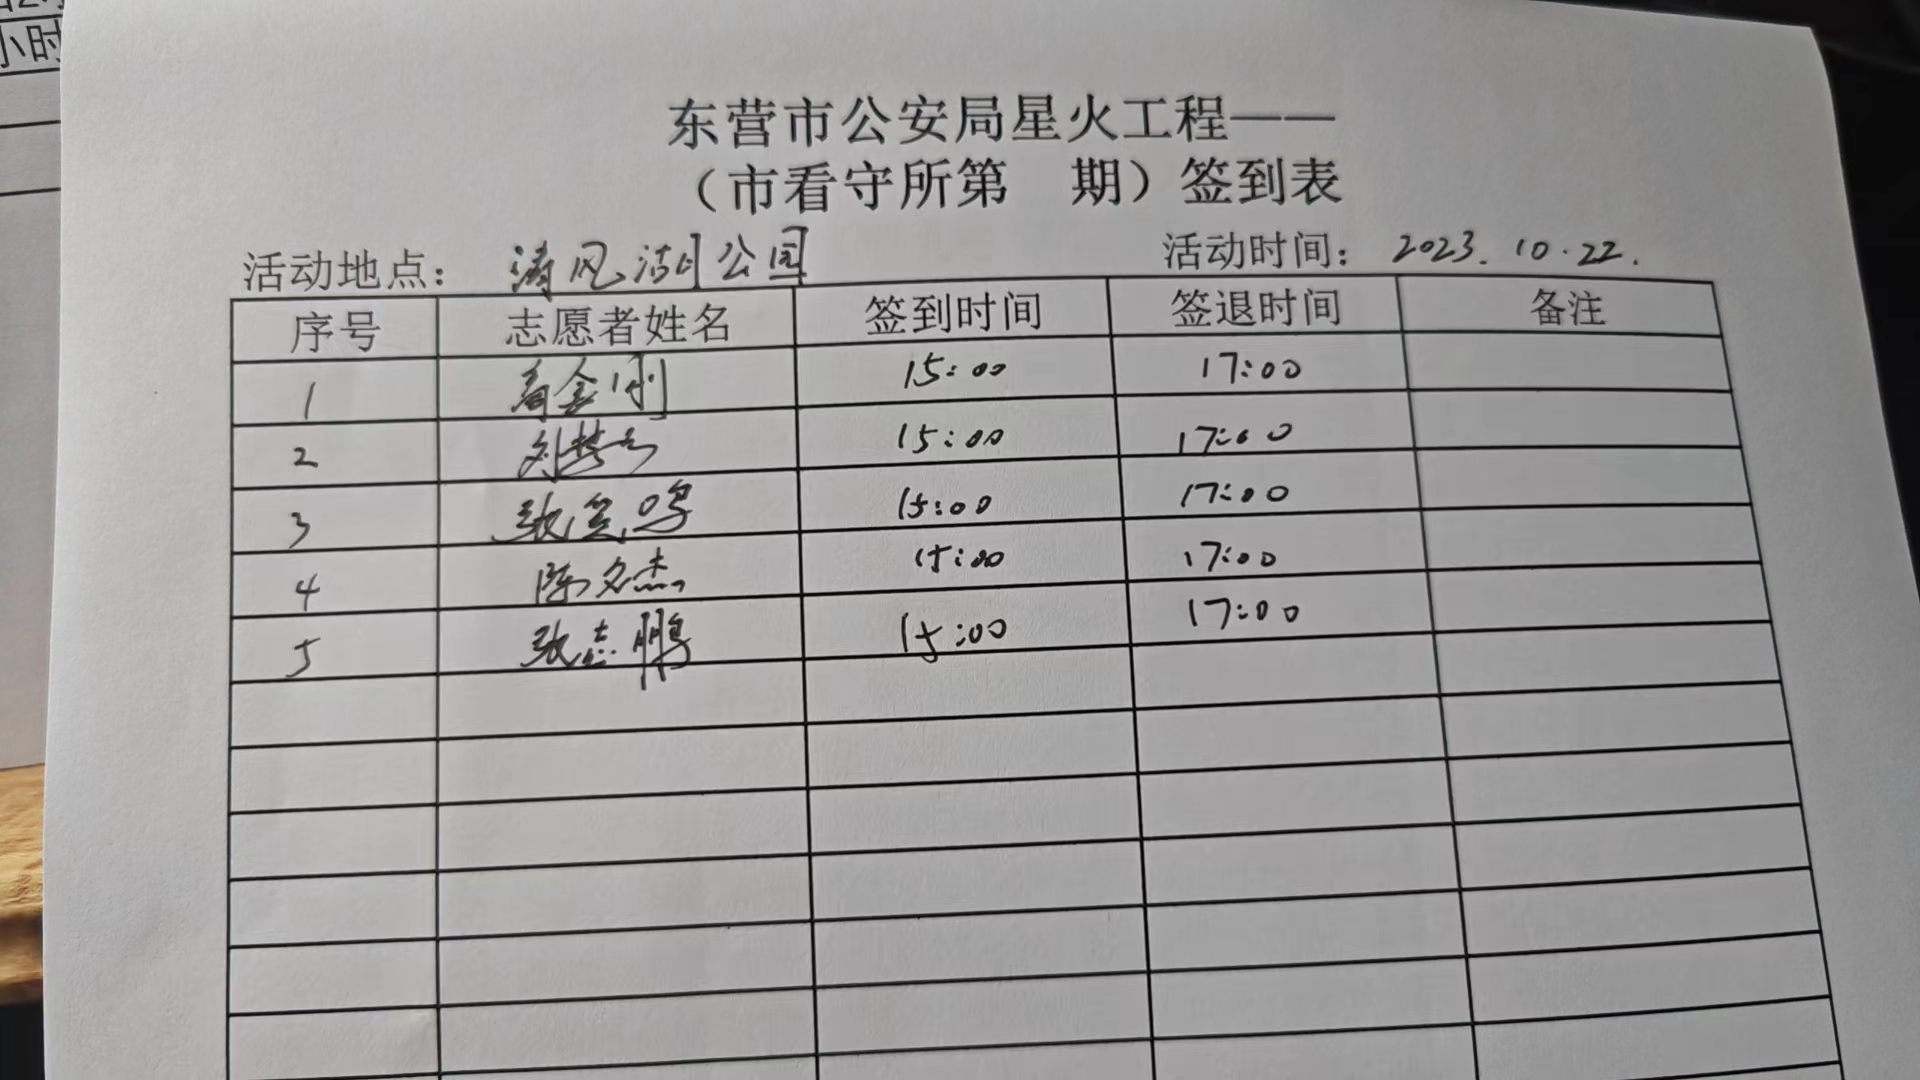 小时
东营市公安局星火工程——
（市看守所第 期）签到表
活动地点： 清风湖公园 活动时间： 2023.10.22.
序号 志愿者姓名 签到时间 签退时间 备注
1 金刚 15:00 17:00
2 刘 15:00 17:00
3 张 鸣 15:00 17:00
4 陈文杰 15:00 17:00
5 张志鹏 15:00 17:00